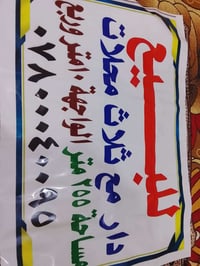 للبيع
دار مع ثلاث محلات
مساحة ٢٥٥ متر الواجهة ١٠ امتر وربع
٠٧٨٠٠٠٤٠٠٩٥